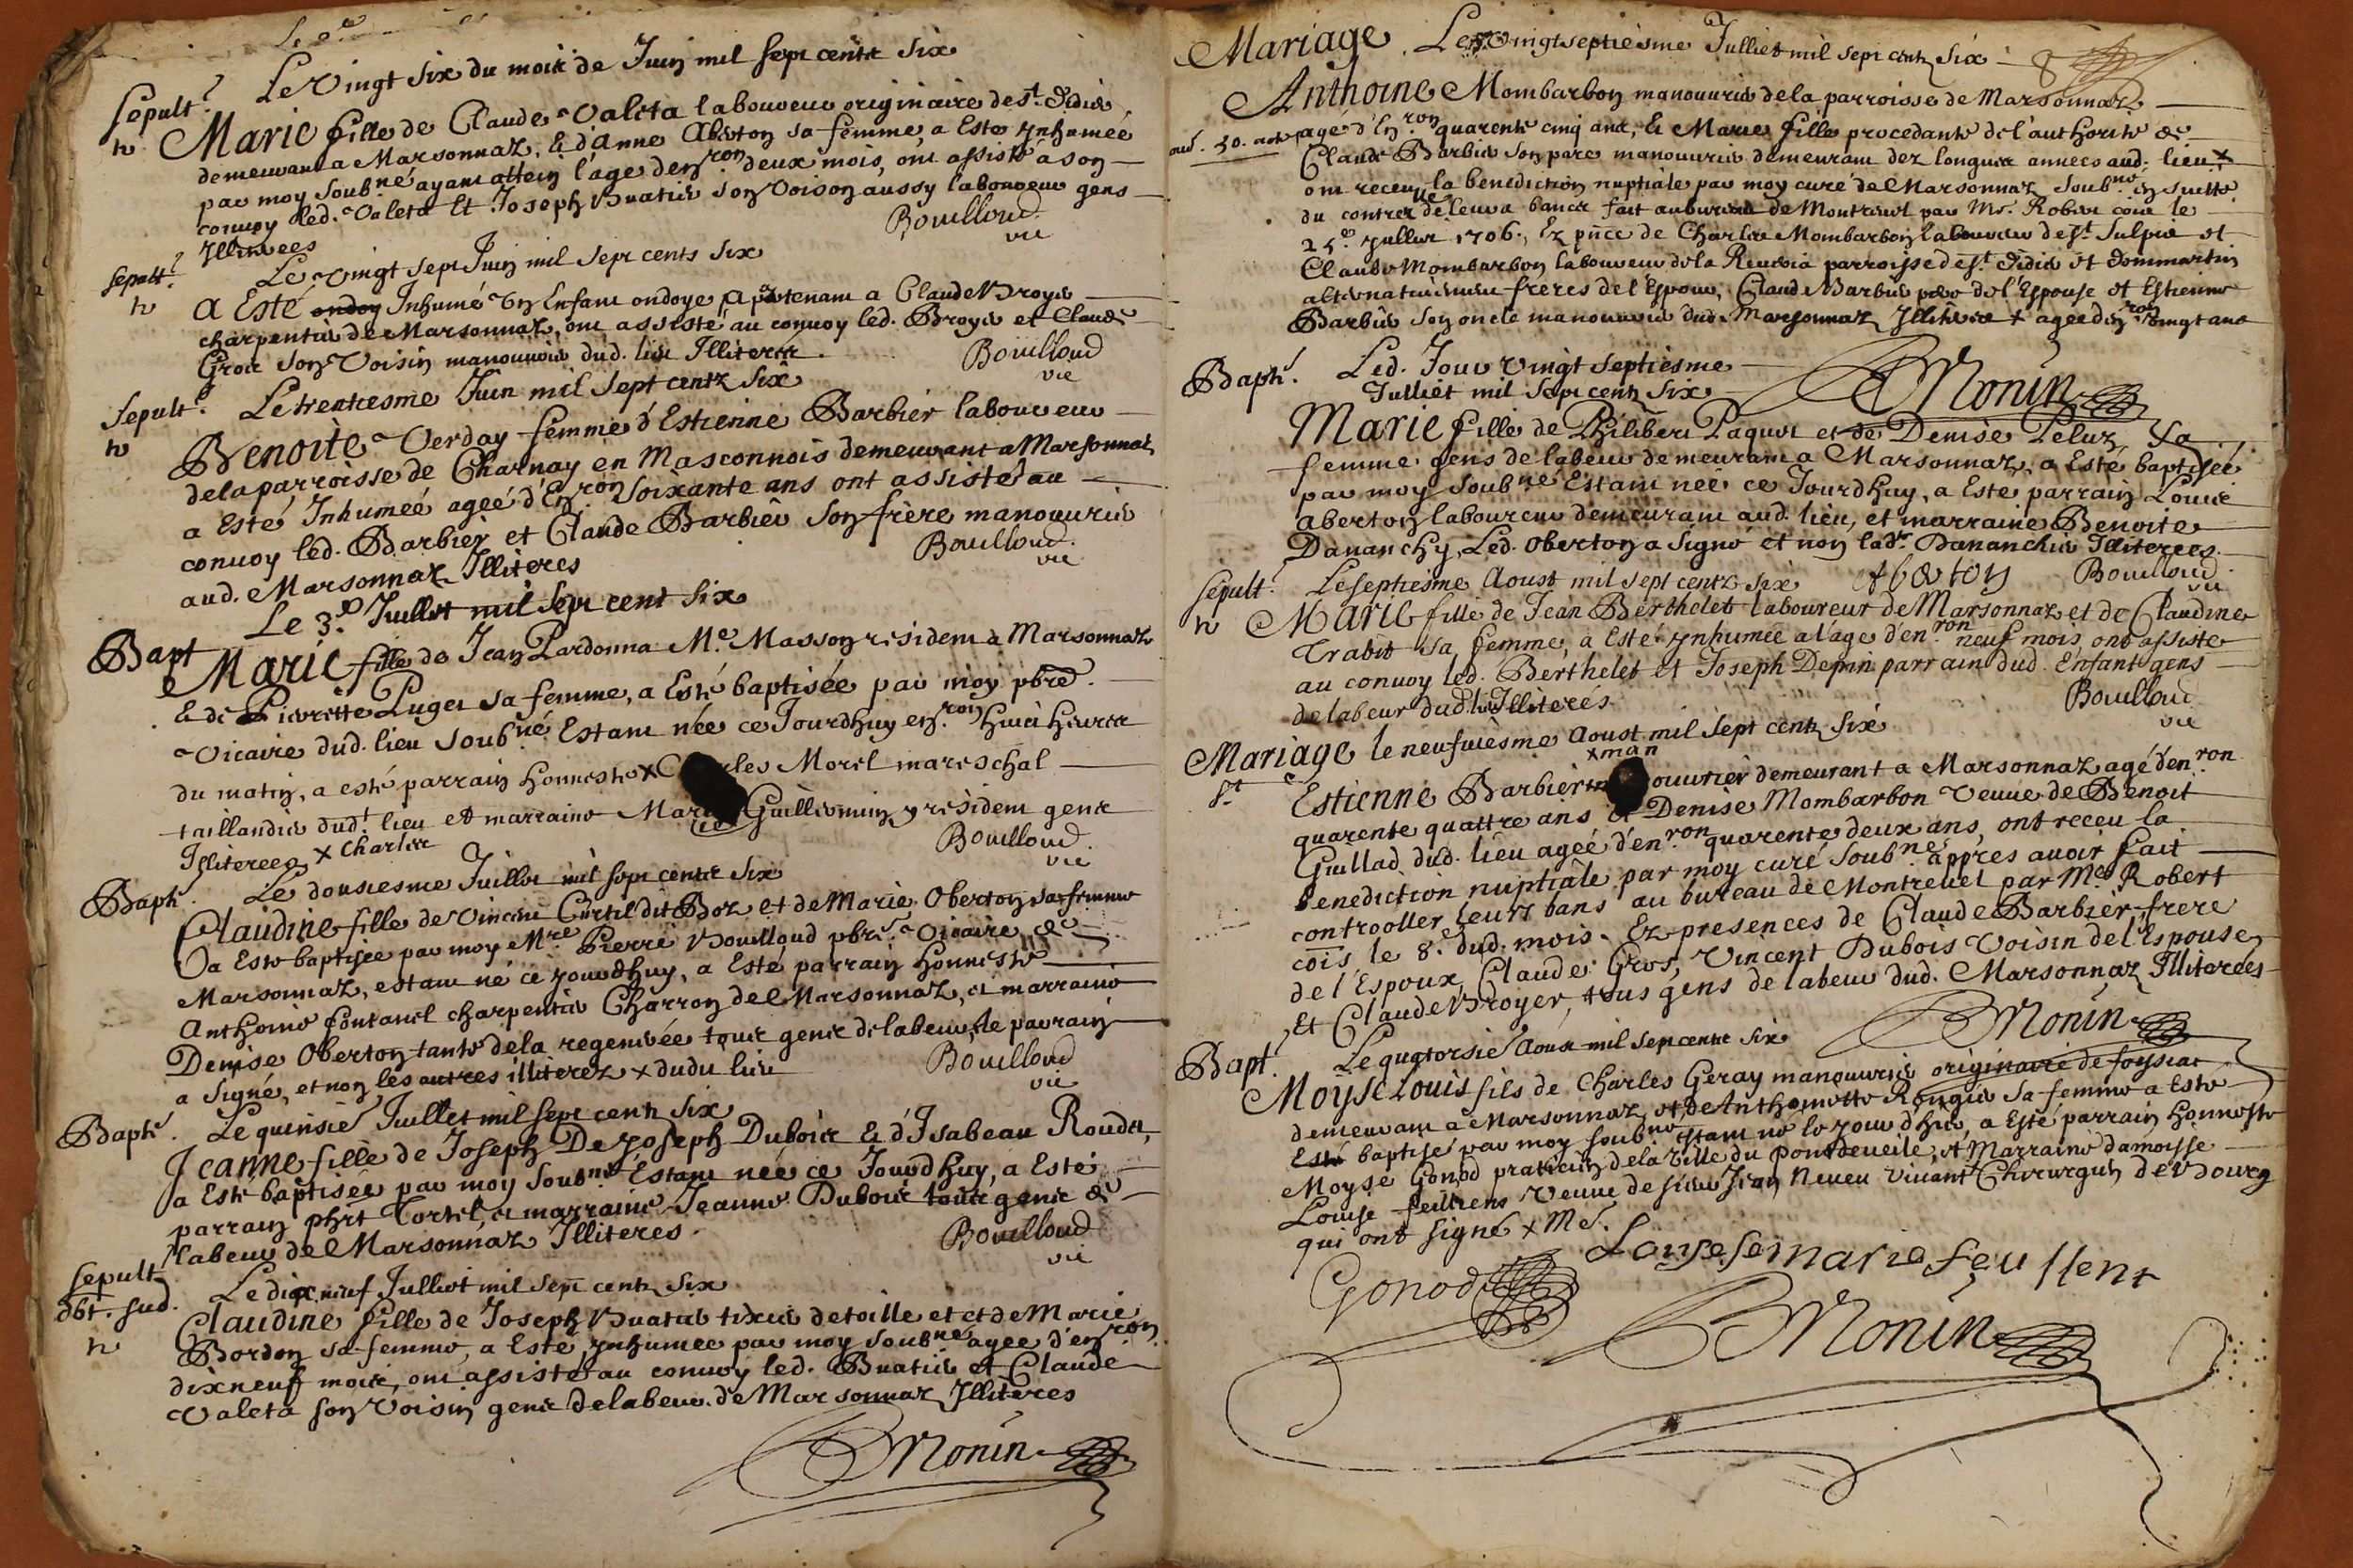 Sepult.
Le Vingt six du mois de Juin mil sept cents six
Marie fille de Claude Valeta laboureur originaire de St. Didier
demeurant a Marsonnaz, & d'Anne Aberton sa femme, a Esté Jnhumeé
par moy soubne. ayant attein l'age d'enron. deux mois, ont assisté a son
convoy led. Valeta Et Joseph Buatier son Voison aussy laboureur gens
Jlliterees
Bouilloud
vic
Sepult.
Le Vingt sept Juin mil sept cents six
A Esté ondoy Jnhumé Un Enfant ondoye apartenant a Claude Broyer
charpentier de Marsonnaz, ont assisté au convoy led. Broyer et Claude
Gros son Voisin manouvrier dud. lieu Jlliteres.
Bouilloud
vic
Sepult.
Le trentiesme Juin mil sept centz six
Benoite Verday femme d'Estienne Barbier laboureur
de la parroisse de Charnay en Masconnois demeurant a Marsonnaz
a Esté Jnhumeé ageé d'Enron. soixante ans ont assisté au
convoy led. Barbier et Claude Barbier son frère manouvrier
aud. Marsonnaz Jlliteres
Bouilloud
vic
Bapt
Le 3e. Juillet mil sept cent six
Marie fille de Jean Pardonna Me. Masson résident à Marsonnaz
& de Pierrette Puget sa femme, a Esté baptisée par moy pbre.
Vicaire dud. lieu soubné. Estant née ce Jourdhuy enron. huict heures
du matin, a esté parrain honneste x Charles Morel mareschal
taillandier dudt. lieu et marraine Marie Guillermin y résident gens
Jlliterees x Charles
Bouilloud
vic
Bapte.
Le dousiesme Juillet mil sept cents six
Claudine fille de Vincent Curtil dit Boz et de Marie Oberton sa femme
a Esté baptisée par moy Mre. Pierre Bouilloud pbre. Vicaire de
Marsonnaz, estant né ce jourdhuy, a Esté parrain honneste
Anthoine fontanel charpentier Charron de Marsonnaz, et marraine
Denise Oberton tante de la regenerée tous gens de labeur, le parrain
a signé, et non les autres illiterez x dudit lieu
Bouilloud
vic
Bapte.
Le quinsie Juillet mil sept centz six
Jeanne fille de Joseph De Joseph Dubois & d'Isabeau Roudet,
a Esté baptisée par moy soubné Estant née ce Jourdhuy, a Esté
parrain phrt Tortel, et marraine Jeanne Dubois tous gens de
labeur de Marsonnaz Jlliteres.
Bouilloud
vic
Sepult
dbt. sud.
Le dix neuf Julliet mil sept centz six
Claudine fille de Joseph Buatier tixier de toille et et de Marie
Bordon sa femme, a Esté ynhumee par moy soubne agee d'enron.
dix neuf mois, ont assisté au convoy led. Buatier et Claude
Valeta son Voisin gens de labeur de Marsonnaz Jlliteres
Monin
Mariage. Le Vingt septiesme Julliet mil sept centz six 8
Anthoine Mombarbon manouvrier de la parroisse de Marsonnaz
agé d'Enron quarente cinq ans, & Marie fille procedante de l'authorité de
Claude Barbier son pere manouvrier demeurant dez longues annees aud. lieu x
ont receu la benediction nuptiale par moy curé de Marsonnaz soubné. en suitte
du contrerlle de leurs bancs fait au bureau de Montrevel par Mr. Robert
25e. Jullier 1706., Ez pnce de Charles Mombarbon laboureur de St. Sulpis et
Claude Mombarbon laboureur de la parroisse de St. Didier et Dommartin
alternativement freres de l'Espoux, Claude Barbier pere de l'Espouse et Estienne
Barbier son oncle manouvrier dud. Marsonnaz Jlliteres x agee d'enron Vingt ans
Monin
Bapt.
Led. Jour Vingt septiesme
Julliet mil sept cents six
Marie fille de Philibert Paquet et de Denise Peluz sa
femme gens de labeur demeurant a Marsonnaz, a Esté baptisée
par moy soubné Estant née ce Jourdhuy, a Este parrain Louis
Aberton laboureur demeurant aud. lieu, et marraine Benoite
Dananchy, Led. Oberton a signé et non lade. Dananchie Jlliterees.
Aberton
Bouilloud
vic
Sepult.
Le septiesme Aoust mil sept centz six
Marie fille de Jean Berthelet laboureur de Marsonnaz et de Claudine
Trabit sa femme, a Esté ynhumée a l'age d'enron. neuf mois, ont assisté
au convoy led. Berthelet et Joseph Depin parrain dud. Enfant gens
de labeur dud. lieu Jlliterés.
Bouilloud
vic
Mariage
le neufviesme Aoust mil sept centz six
xman
Estienne Barbier ouvrier demeurant a Marsonnaz agé d'enron.
quarente quattre ans et Denise Mombarbon Veuve de Benoit
Guillad dud. lieu ageé d'enron quarente deux ans, ont receu la
benediction nuptiale par moy curé soubné. appres avoir fait
controoller leurs bans au bureau de Montrevel par Me. Robert
cois le 8e. dud. mois. Ez presences de Claude Barbier frere
de l'Espoux, Claude Gros, Vincent Dubois Voisin de l'Espouse,
Et Claude Broyer, tous gens de labeur dud. Marsonnaz Jlliterées
Monin
Bapt.
Le quatorsie Aoust mil sept cents six
Moyse Louis fils de Charles Geray manouvrier originaire de foyssiat
demeurant a Marsonnaz, et de Anthoinette Rougier sa femme a Esté
Esté baptisé par moy soubné estant né le jour d'hier, a Esté parrain honneste
Moyse Gonod praticien de la Ville du pontdeveile, et Marraine damoisse
Louise feillens Veuve de sieur Jean Neveu Vivant Chirurgien de Bourg
qui ont signé x Me.
Gonod
Louyse semarie feullent
Monin